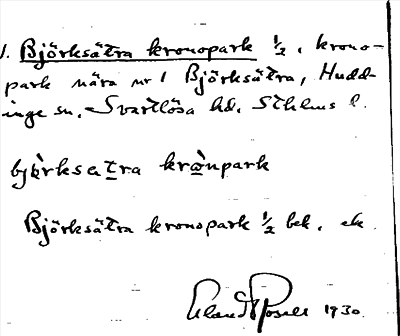 1. Björksätra kronopark ½, krono-
park nära nr 1 Björksätra, Hudd-
inge sn, Svartlösa hd. Sthlms l.
Björksätra kronopark ½ bek. ek.
Erland Rosell 1930.